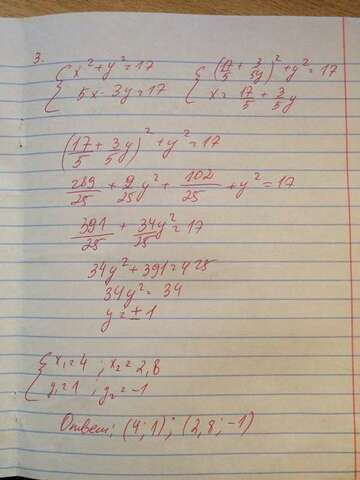 3.
{ x² + y² = 17
5x - 3y = 17
{ (17/5 + 3/5y)² + y² = 17
x = 17/5 + 3/5 y
(17/5 + 3/5 y)² + y² = 17
289/25 + 9/25 y² + 102/25 + y² = 17
391/25 + 34/25 y² = 17
34y² + 391 = 425
34y² = 34
y = ± 1
{ x₁ = 4 ; x₂ = 2,8
y₁ = 1 ; y₂ = -1
Ответ: (4; 1); (2,8; -1)